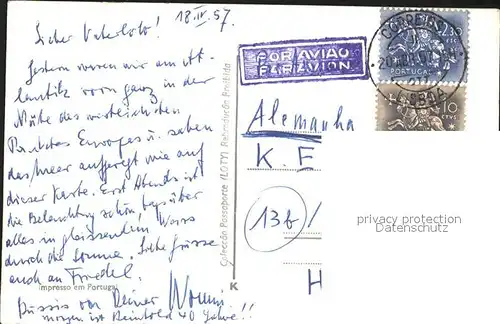 18. IV. 57.
Lieber Vaterlobb!
Gestern waren wir am Atlantik vorn ganz in der
Nähe des westlichsten
Punktes Europas u. sahen
das Meer aufgeregt wie auf
dieser Karte. Erst Abends ist
die Beleuchtung schön, tagsüber
alles in gleissendem Weiss
durch die Sonne. Liebe Grüsse
auch an Friedel.
Impresso em Portugal
Bussis von Deiner
morgen ist Reinhold 40 Jahre!!
Colecção Passaporte (LOTY) Reprodução Proibida
K
POR AVIÃO
PAR AVION
CORREIOS
2$30
PORTUGAL
LISBOA
10
CTVS
Alemanha
K. E
13b/
H
privacy protection
Datenschutz